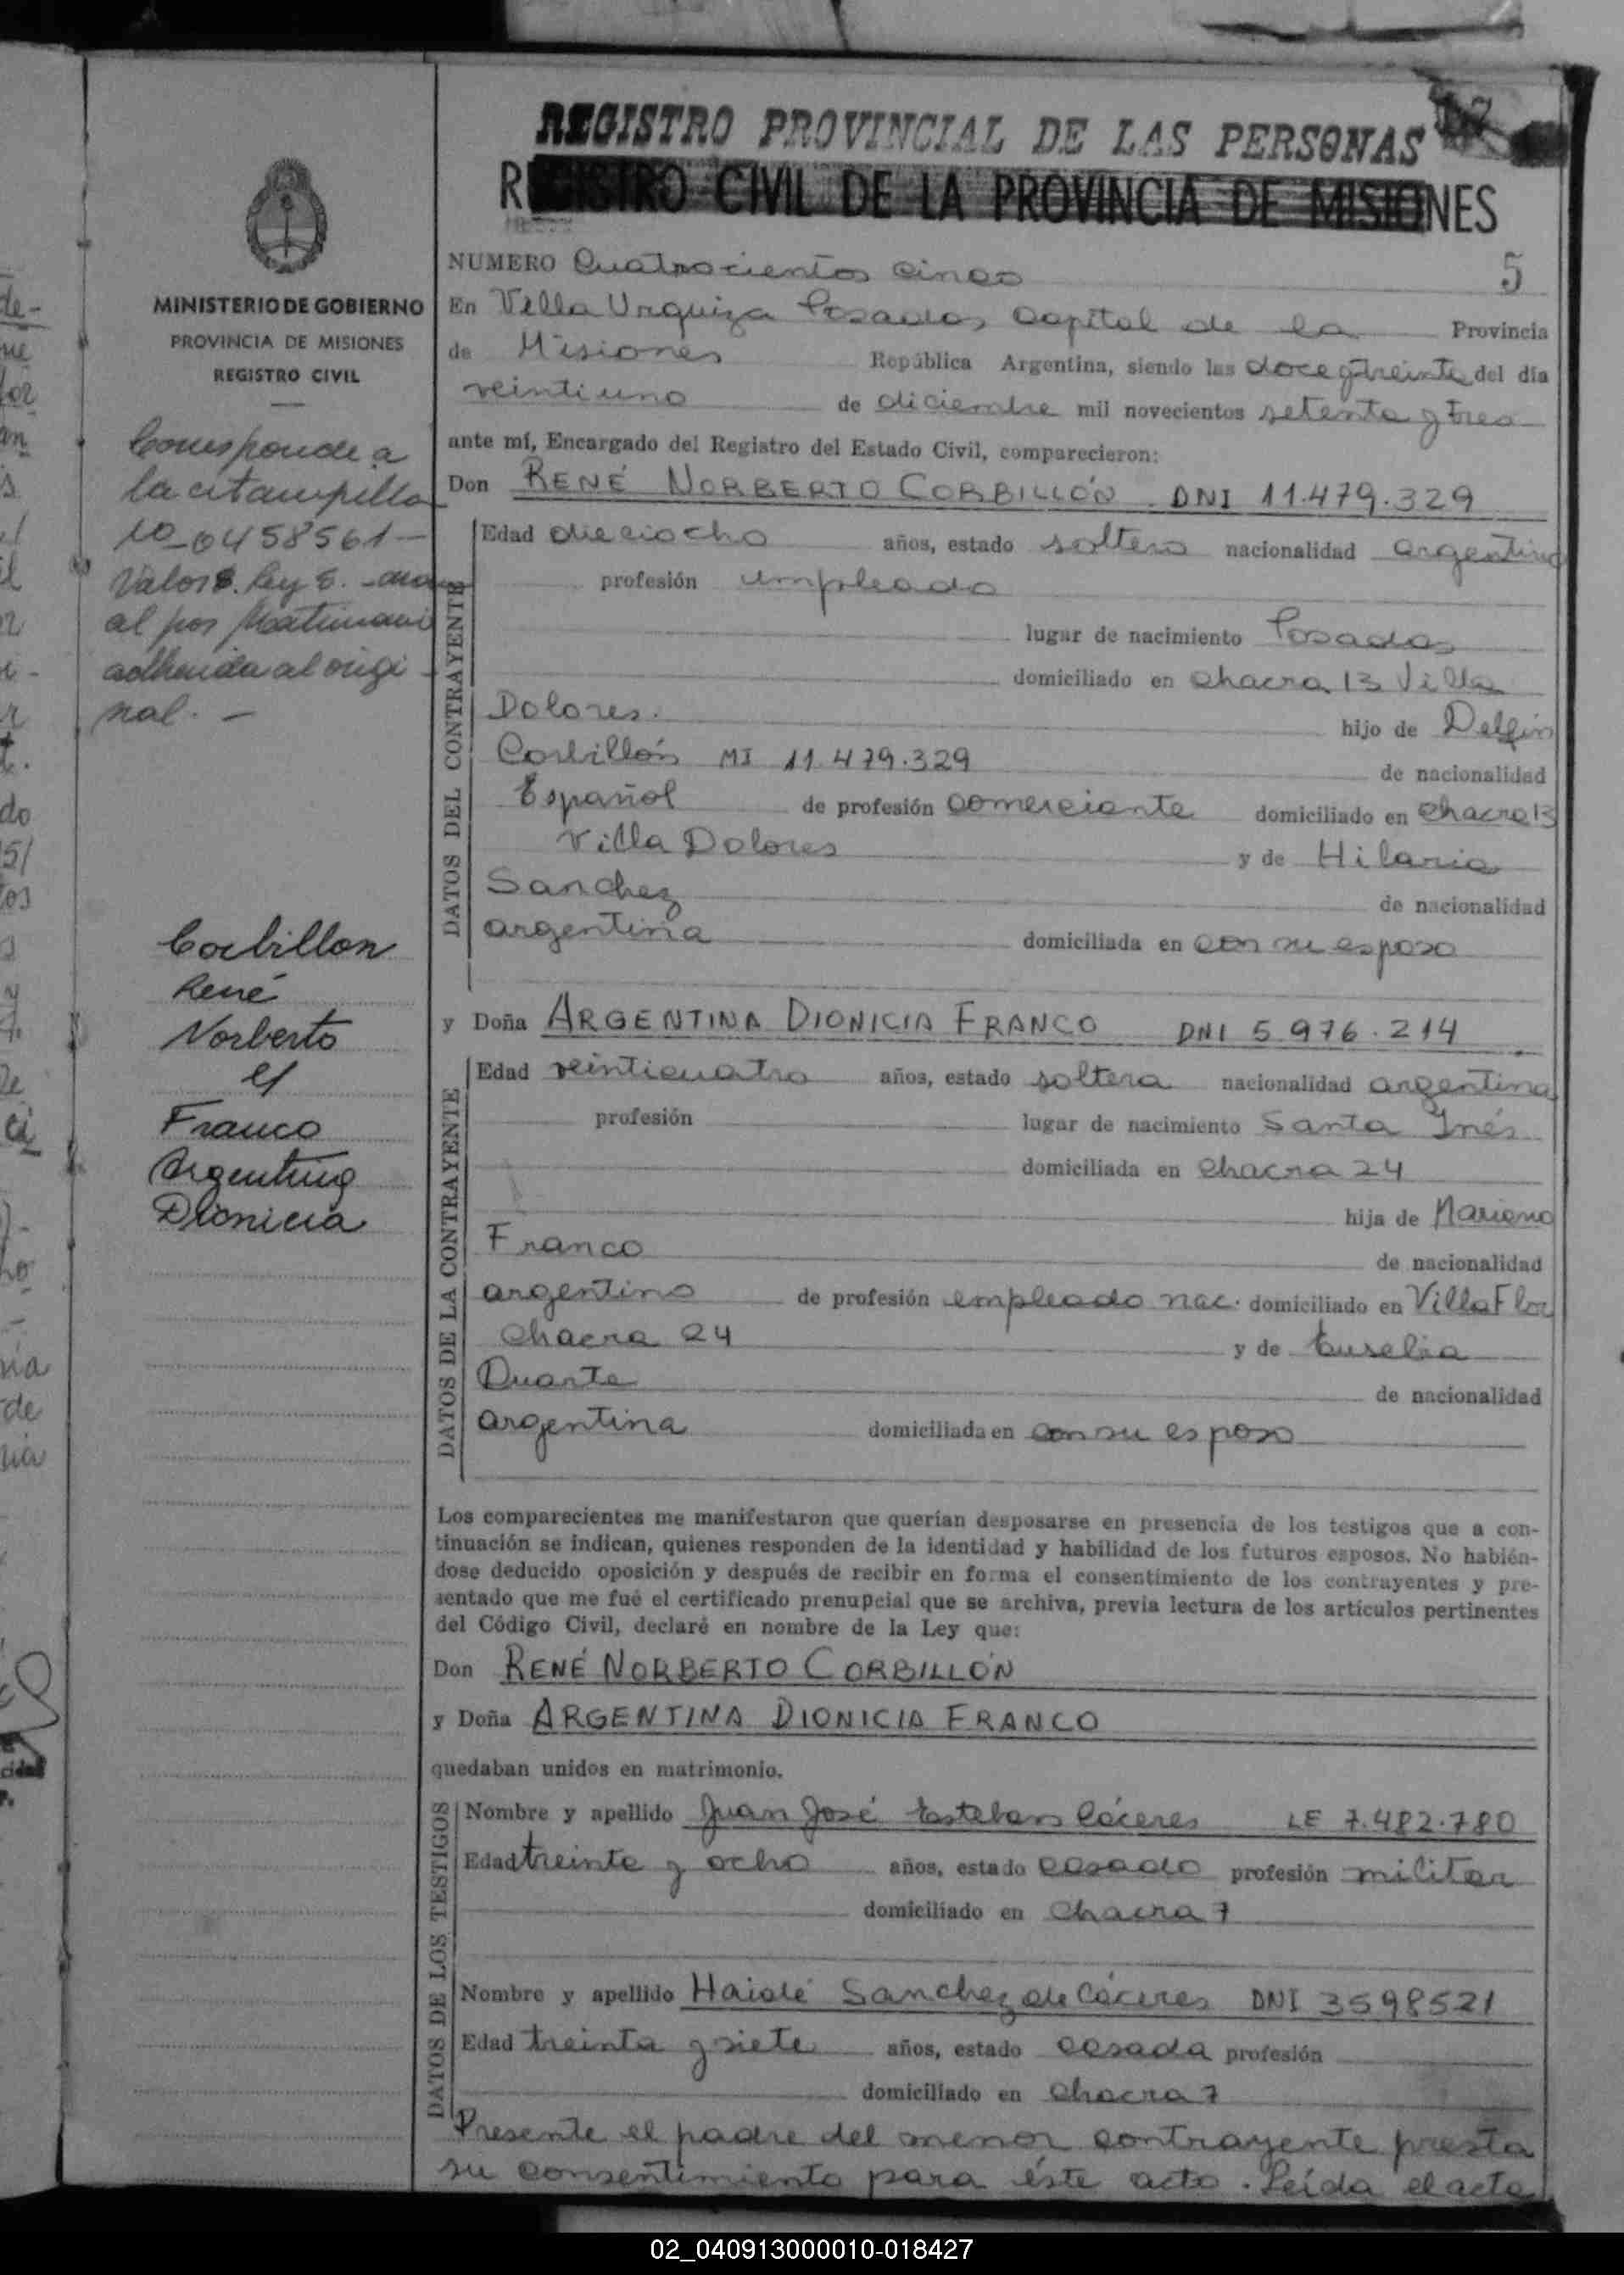 REGISTRO PROVINCIAL DE LAS PERSONAS
REGISTRO CIVIL DE LA PROVINCIA DE MISIONES
MINISTERIO DE GOBIERNO
PROVINCIA DE MISIONES
REGISTRO CIVIL
Corresponde a
la estampilla
10-0458561-
Valor $. Ley
al por Matrimoni
adherida al origi
nal. -
Corbillon
René
Norberto
y
Franco
Argentina
Dionicia
NUMERO Cuatrocientos cinco 5
En Villa Urquiza Posadas, capital de la Provincia
de Misiones República Argentina, siendo las doce y treinta del día
veintiuno de diciembre mil novecientos setenta y tres
ante mí, Encargado del Registro del Estado Civil, comparecieron:
Don RENÉ NORBERTO CORBILLÓN DNI 11.479.329
DATOS DEL CONTRAYENTE
Edad dieciocho años, estado soltero nacionalidad argentino
profesión empleado
lugar de nacimiento Posadas
domiciliado en chacra 13 Villa
Dolores. hijo de Delfin
Corbillón MI 11.479.329 de nacionalidad
Español de profesión comerciante domiciliado en chacra 13
Villa Dolores y de Hilaria
Sanchez de nacionalidad
argentina domiciliada en con su esposo
y Doña ARGENTINA DIONICIA FRANCO DNI 5.976.214
DATOS DE LA CONTRAYENTE
Edad veinticuatro años, estado soltera nacionalidad argentina
profesión lugar de nacimiento Santa Inés
domiciliada en chacra 24
hija de Mariano
Franco de nacionalidad
argentino de profesión empleado nac. domiciliado en Villa Flor
chacra 24 y de Eusebia
Duarte de nacionalidad
argentina domiciliada en con su esposo
Los comparecientes me manifestaron que querían desposarse en presencia de los testigos que a con-
tinuación se indican, quienes responden de la identidad y habilidad de los futuros esposos. No habién-
dose deducido oposición y después de recibir en forma el consentimiento de los contrayentes y pre-
sentado que me fué el certificado prenupcial que se archiva, previa lectura de los artículos pertinentes
del Código Civil, declaré en nombre de la Ley que:
Don RENÉ NORBERTO CORBILLÓN
y Doña ARGENTINA DIONICIA FRANCO
quedaban unidos en matrimonio.
DATOS DE LOS TESTIGOS
Nombre y apellido Juan José Esteban Cáceres LE 7.482.780
Edad treinta y ocho años, estado casado profesión militar
domiciliado en chacra 7
Nombre y apellido Haidé Sanchez de Cáceres DNI 3598521
Edad treinta y siete años, estado casada profesión
domiciliado en chacra 7
Presente el padre del menor contrayente presta
su consentimiento para éste acto. Leída el acta
02_040913000010-018427